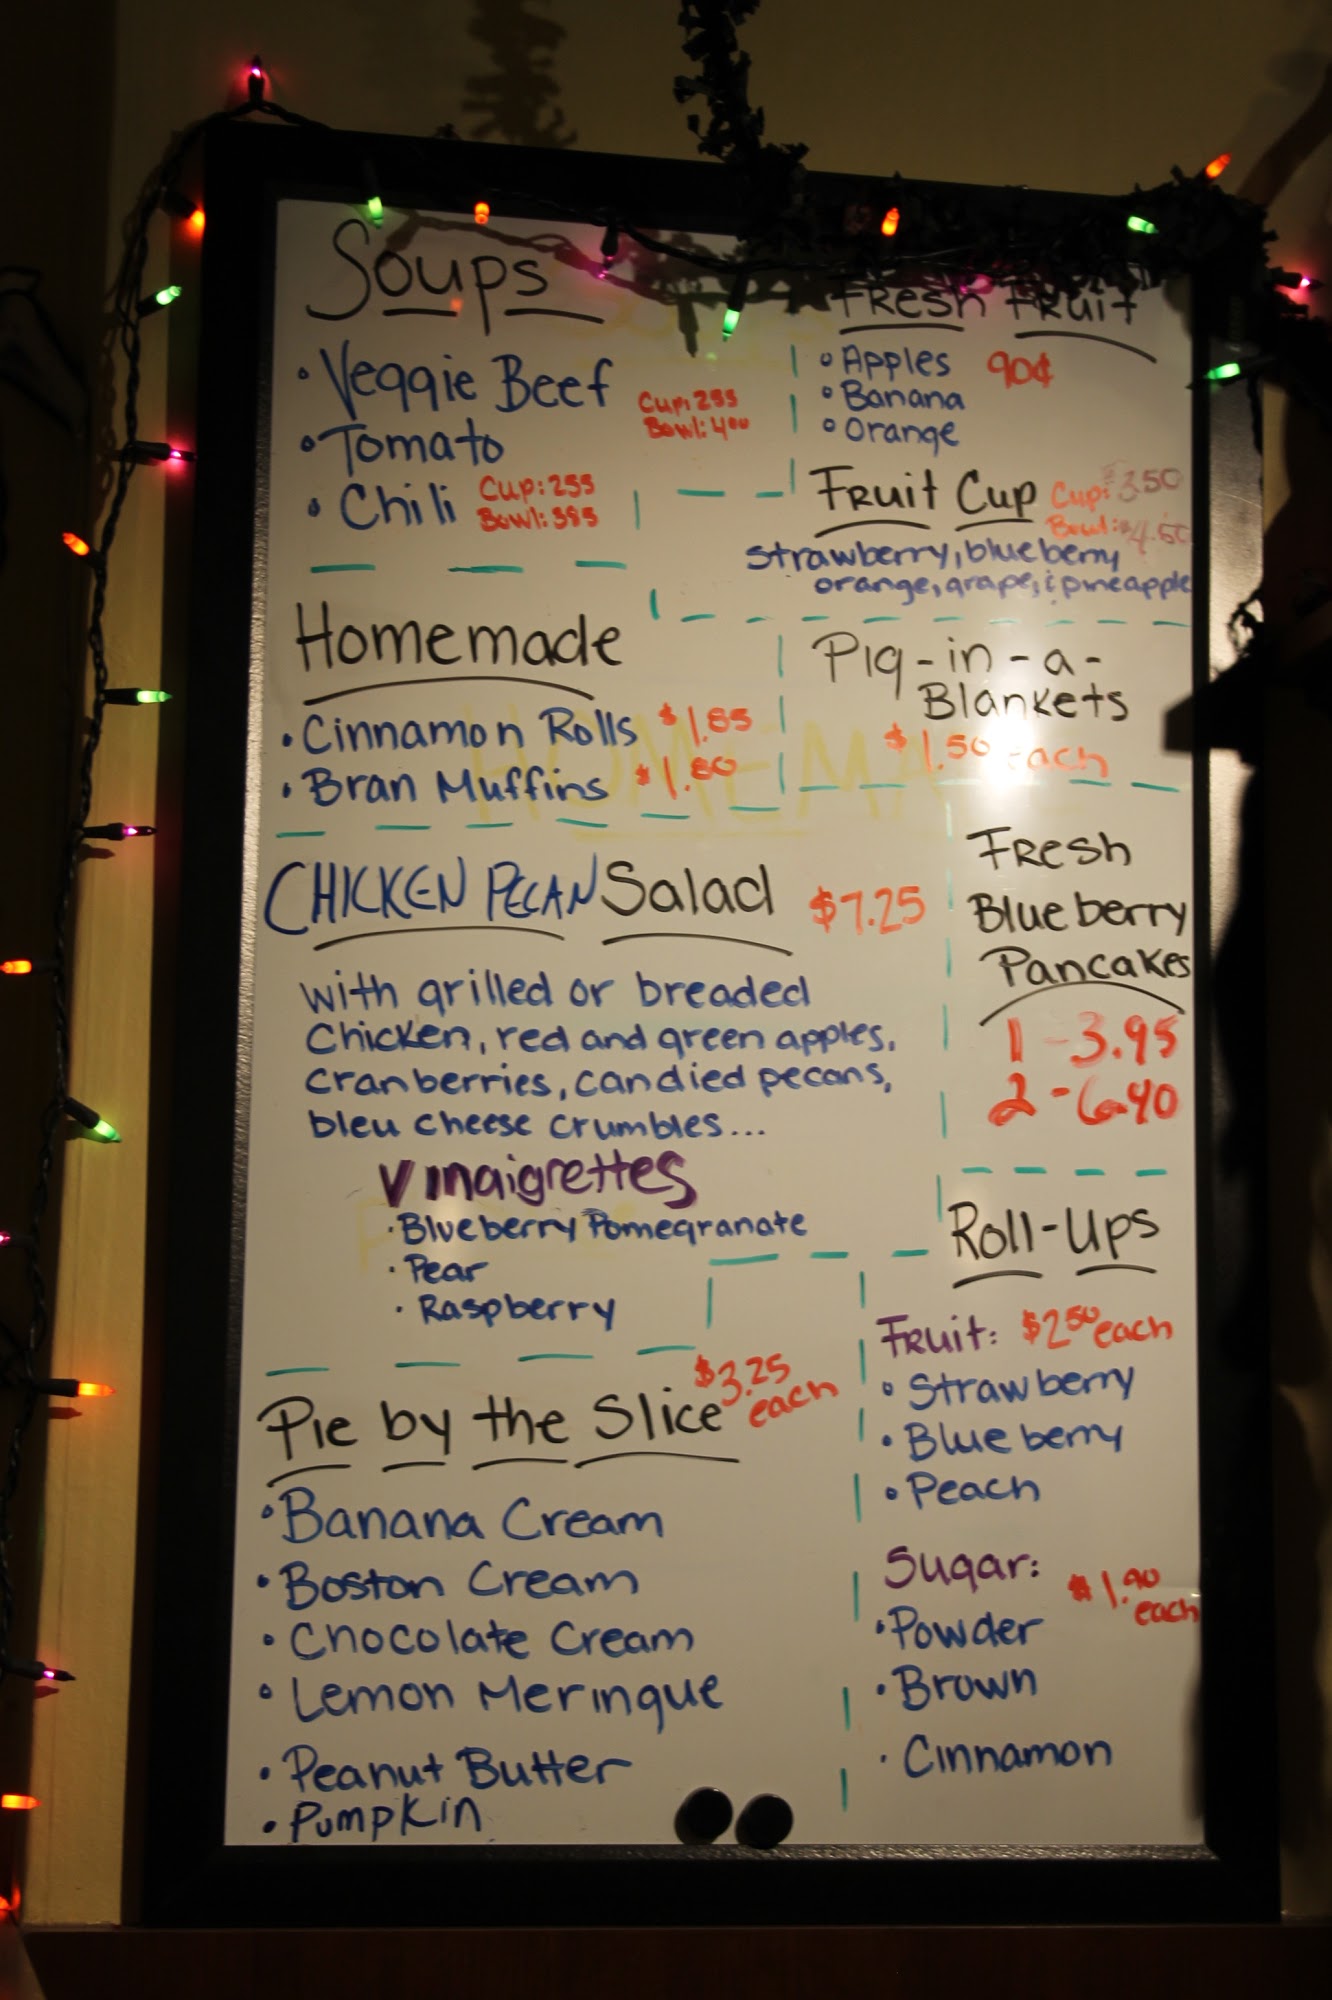 Soups
• Veggie Beef
• Tomato
Cup: 255
Bowl: 400
• Chili
Cup: 255
Bowl: 395
Fresh Fruit
• Apples 90¢
• Banana
• Orange
Fruit Cup
Cup: $3.50
Bowl: $4.50
strawberry, blueberry
orange, grape, & pineapple
Homemade
• Cinnamon Rolls $1.85
• Bran Muffins $1.80
Pig-in-a-
Blankets
$1.50 each
CHICKEN PECAN Salad $7.25
with grilled or breaded
Chicken, red and green apples,
cranberries, candied pecans,
bleu cheese crumbles...
Vinaigrettes
• Blueberry Pomegranate
• Pear
• Raspberry
Fresh
Blueberry
Pancakes
1 - 3.95
2 - 6.40
Pie by the Slice $3.25 each
• Banana Cream
• Boston Cream
• Chocolate Cream
• Lemon Meringue
• Peanut Butter
• Pumpkin
Roll-Ups
Fruit: $2.50 each
• Strawberry
• Blueberry
• Peach
Sugar: $1.90 each
• Powder
• Brown
• Cinnamon